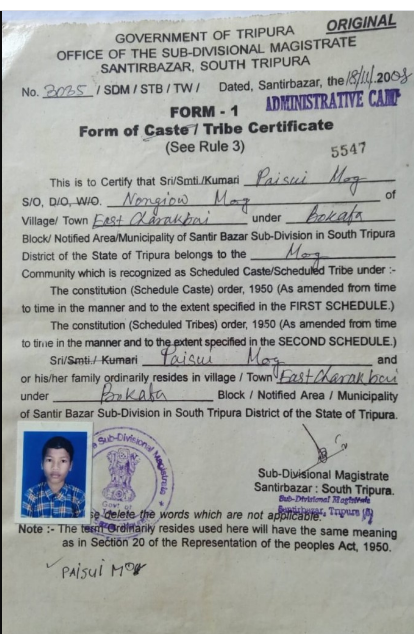 ORIGINAL
GOVERNMENT OF TRIPURA
OFFICE OF THE SUB-DIVISIONAL MAGISTRATE
SANTIRBAZAR, SOUTH TRIPURA
No. 3035 / SDM / STB / TW / Dated, Santirbazar, the 18/11/2008
ADMINISTRATIVE CAMP
FORM - 1
Form of Caste / Tribe Certificate
(See Rule 3)
5547
This is to Certify that Sri/Smti./Kumari Paisui Mog
S/O, D/O, W/O. Nongiow Mog of
Village/ Town East Charakbai under Bokafa
Block/ Notified Area/Municipality of Santir Bazar Sub-Division in South Tripura
District of the State of Tripura belongs to the Mog
Community which is recognized as Scheduled Caste/Scheduled Tribe under :-
The constitution (Schedule Caste) order, 1950 (As amended from time
to time in the manner and to the extent specified in the FIRST SCHEDULE.)
The constitution (Scheduled Tribes) order, 1950 (As amended from time
to time in the manner and to the extent specified in the SECOND SCHEDULE.)
Sri/Smti./ Kumari Paisui Mog and
or his/her family ordinarily resides in village / Town East Charakbai
under Bokafa Block / Notified Area / Municipality
of Santir Bazar Sub-Division in South Tripura District of the State of Tripura.
Sub-Divisional Magistrate
Sub-Divisional Magistrate
Santirbazar : South Tripura.
Sub-Divisional Magistrate
Santirbazar, Tripura (S)
delete the words which are not applicable.
Note :- The term Ordinarily resides used here will have the same meaning
as in Section 20 of the Representation of the peoples Act, 1950.
PAISUI MOG